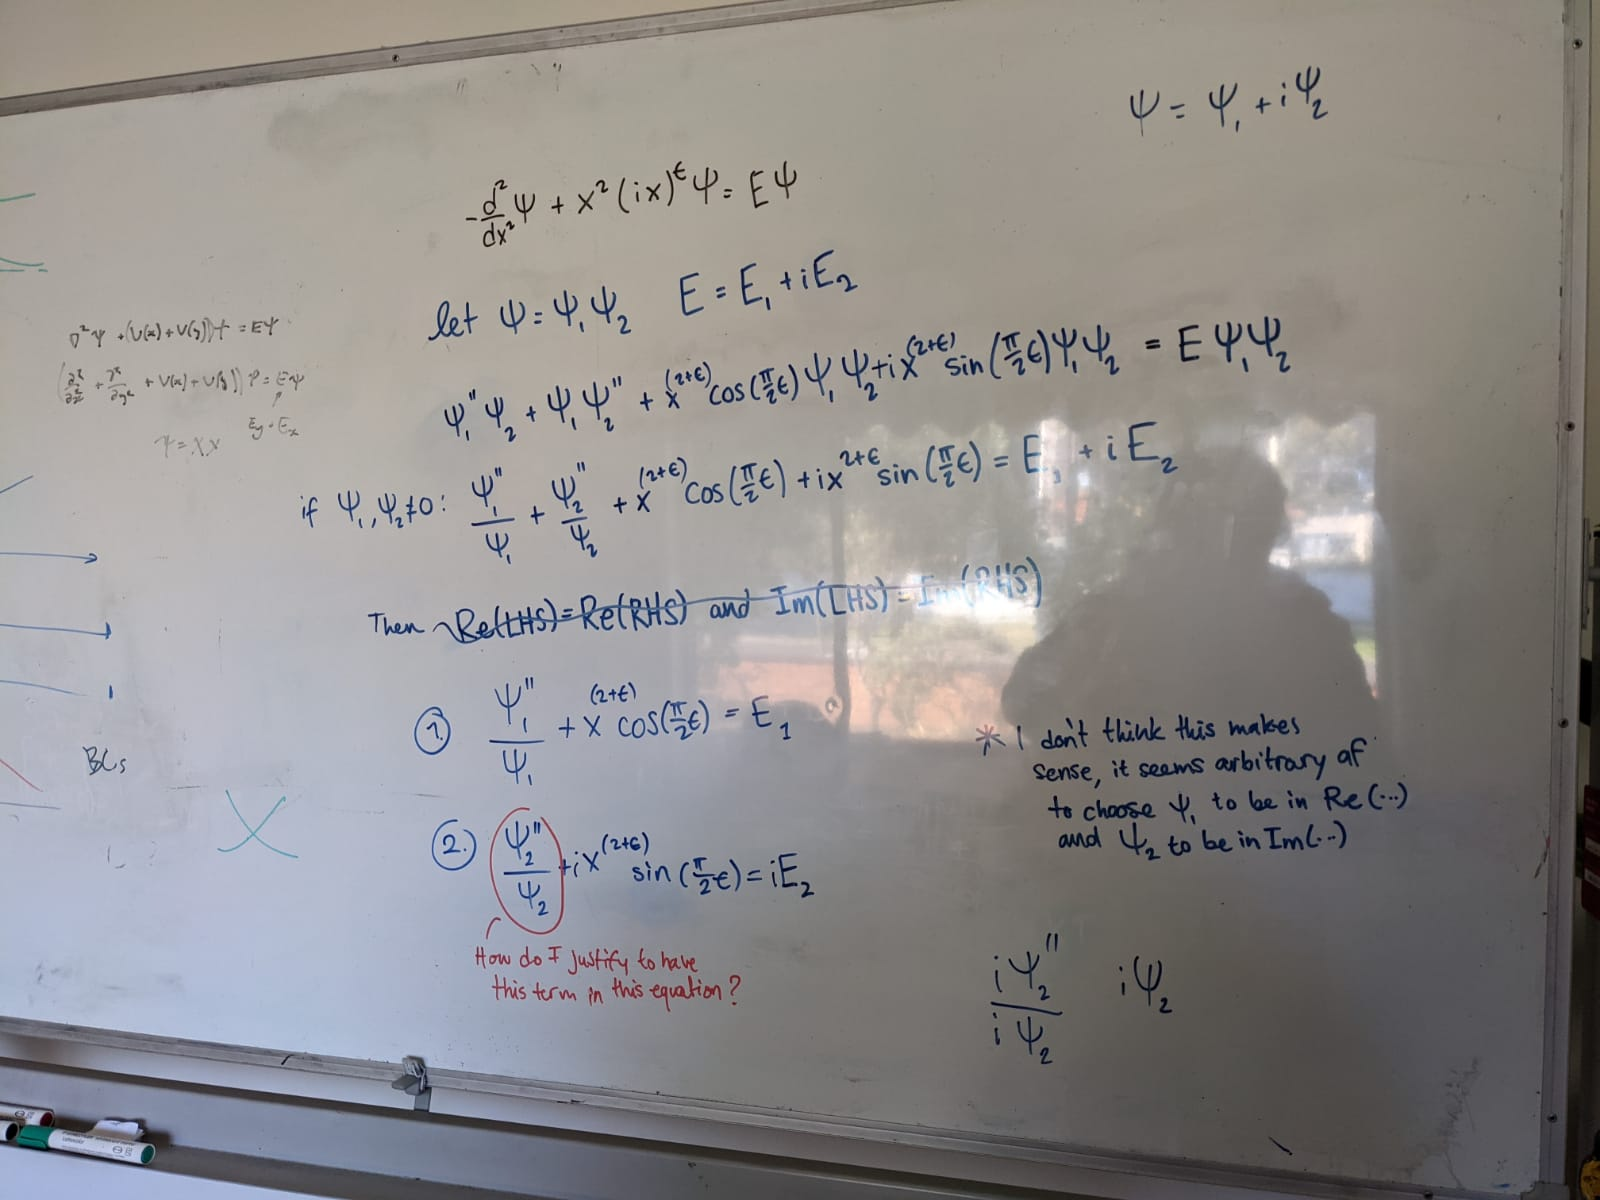 Ψ = Ψ₁ + iΨ₂
-d²/dx² Ψ + x²(ix)^ϵ Ψ = EΨ
let Ψ = Ψ₁Ψ₂   E = E₁ + iE₂
Ψ₁''Ψ₂ + Ψ₁Ψ₂'' + x^(2+ϵ) cos(π/2 ϵ)Ψ₁Ψ₂ + ix^(2+ϵ) sin(π/2 ϵ)Ψ₁Ψ₂ = EΨ₁Ψ₂
if Ψ₁,Ψ₂≠0: Ψ₁''/Ψ₁ + Ψ₂''/Ψ₂ + x^(2+ϵ) cos(π/2 ϵ) + ix^2+ϵ sin(π/2 ϵ) = E₁ + iE₂
Then Re(LHS)=Re(RHS) and Im(LHS)=Im(RHS)
1. Ψ₁''/Ψ₁ + x^(2+ϵ) cos(π/2 ϵ) = E₁
2. Ψ₂''/Ψ₂ + ix^(2+ϵ) sin(π/2 ϵ) = iE₂
How do I justify to have
this term in this equation?
* I don't think this makes
sense, it seems arbitrary af
to choose Ψ₁ to be in Re(...)
and Ψ₂ to be in Im(...)
iΨ₂''/iΨ₂   iΨ₂
∇²Ψ + (V(x)+V(y))Ψ = EΨ
(∂²/∂x² + ∂²/∂y² + V(x)+V(y))Ψ = EΨ
BCs